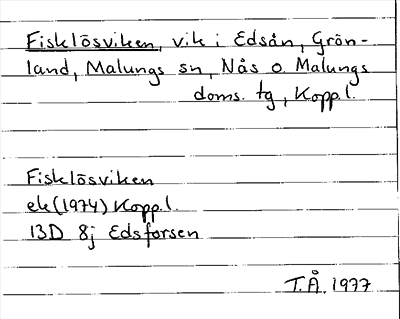 Fisklösviken, vik i Edsån, Grön-
land, Malungs sn, Nås o. Malungs
doms. tg, Kopp.l.
Fisklösviken
ek (1974) Kopp.l.
13D 8j Edsforsen
T.Å. 1977